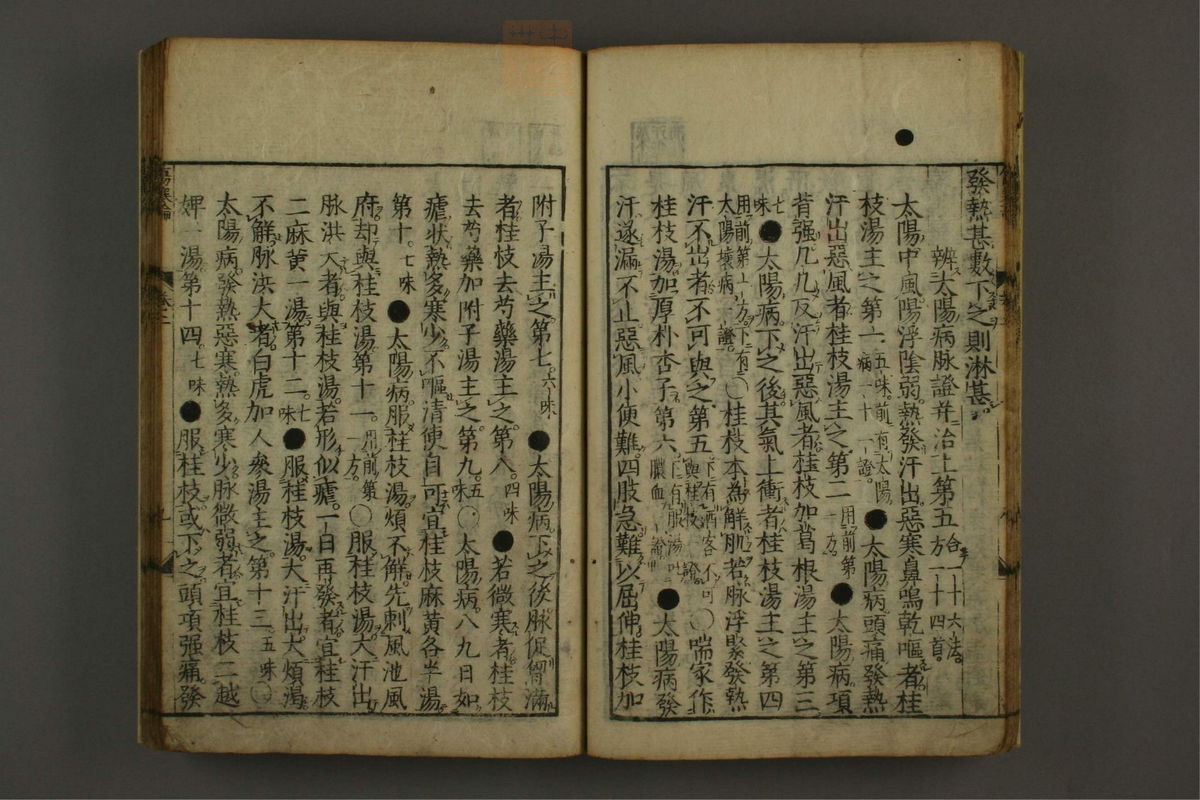 發熱甚數下之則淋甚
辨太陽病脉證并治上第五合一十六法方一十四首
太陽中風陽浮陰弱熱發汗出惡寒鼻鳴乾嘔者桂
枝湯主之第一五味前有太陽病一十一證●太陽病頭痛發熱
汗出惡風者桂枝湯主之第二用前第一方●太陽病項
背强几几反汗出惡風者桂枝加葛根湯主之第三
七味●太陽病下之後其氣上衝者桂枝湯主之第四
用前第一方下有太陽壞病一證○桂枝本為解肌若脉浮緊發熱
汗不出者不可與之第五下有酒客不可與桂枝一證○喘家作
桂枝湯加厚朴杏子第六下有服湯吐膿血一證●太陽病發
汗遂漏不止惡風小便難四肢急難以屈伸桂枝加
附子湯主之第七六味●太陽病下之後脉促胷滿
者桂枝去芍藥湯主之第八四味●若微寒者桂枝
去芍藥加附子湯主之第九五味○太陽病八九日如
瘧状熱多寒少不嘔清便自可宜桂枝麻黄各半湯
第十七味●太陽病服桂枝湯煩不解先刺風池風
府却與桂枝湯第十一用前第一方○服桂枝湯大汗出
脉洪大者與桂枝湯若形似瘧一日再發者宜桂枝
二麻黄一湯第十二七味●服桂枝湯大汗出大煩渴
不解脉洪大者白虎加人參湯主之第十三五味○
太陽病發熱惡寒熱多寒少脉微弱者宜桂枝二越
婢一湯第十四七味●服桂枝或下之頭項强痛發